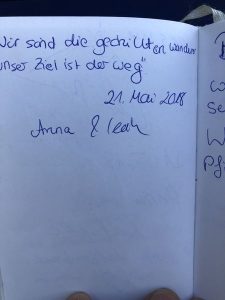 Wir sind die gechillten Wanderer
unser Ziel ist der Weg"
21. Mai 2018
Anna & Leah